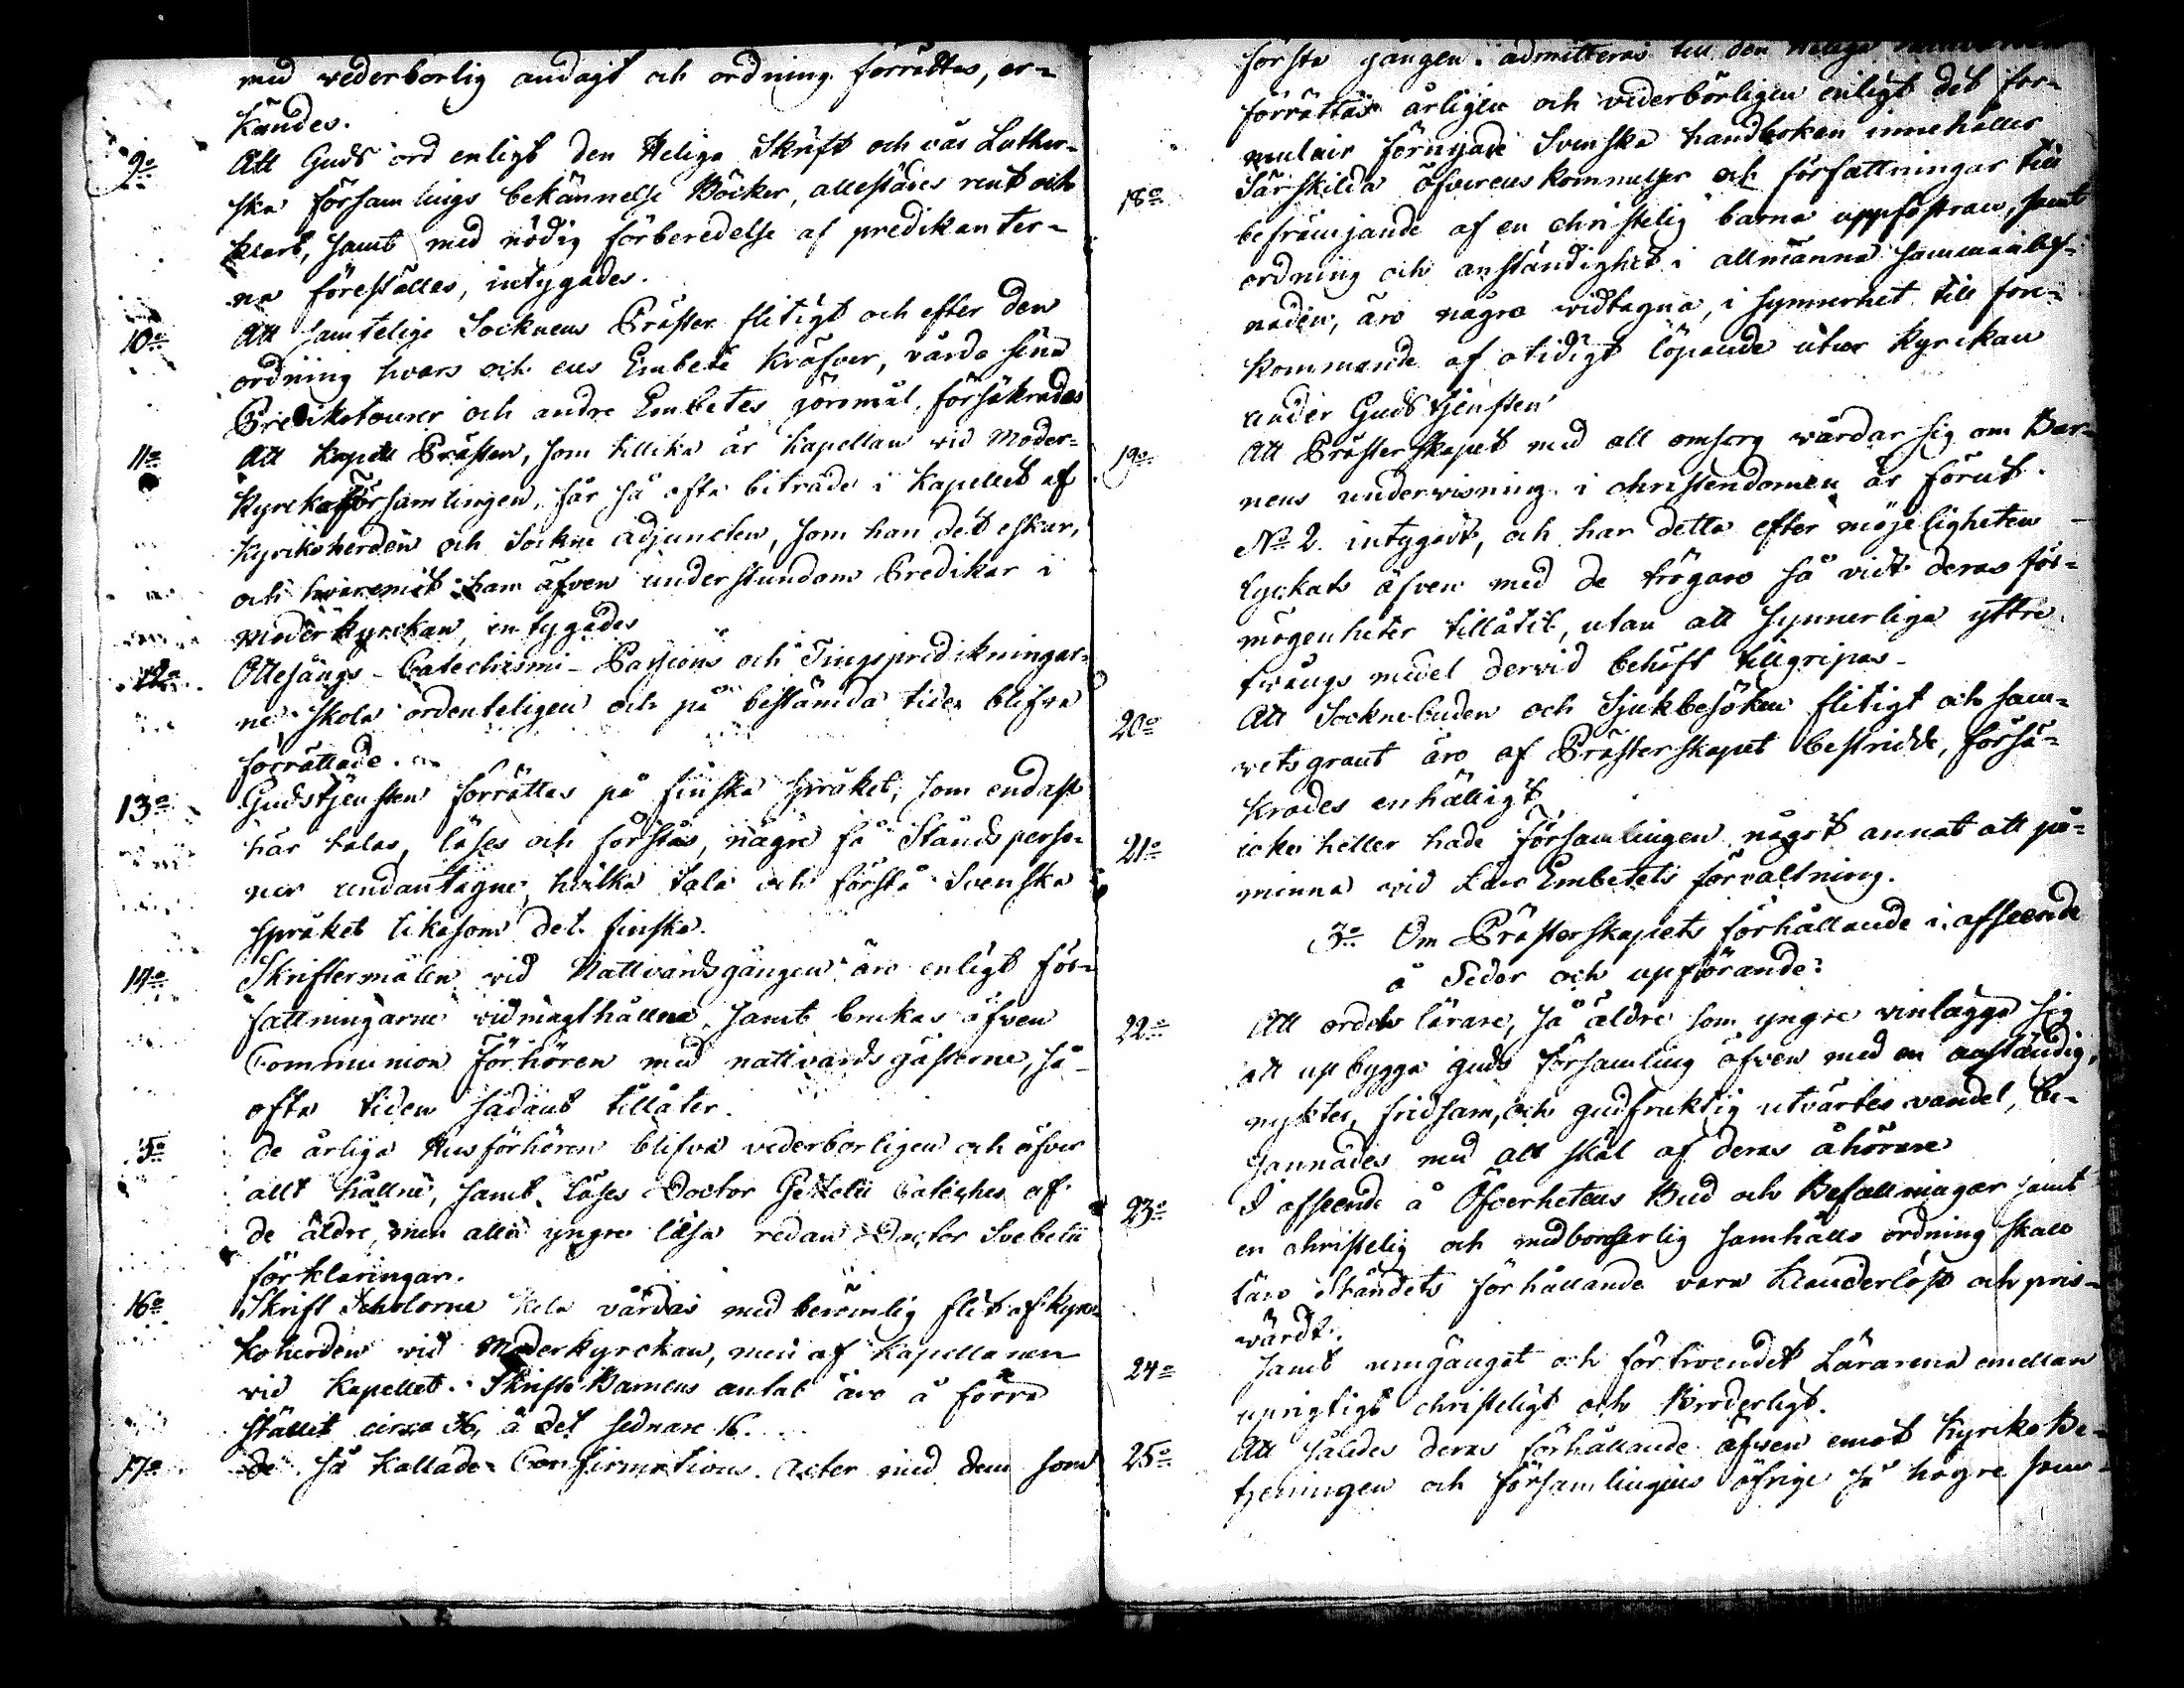 med vederbörlig andagt och ordning förrättas, er-
kändes.
9o Att Guds ord enligt den Heliga Skrift och vår Luther-
ska församlings bekännelse Böcker, allestädes rent och
klart, samt med nödig förberedelse af predikanter-
na föreställes, intygades.
10o Att samtelige Socknens Präster flitigt och efter den
ordning hvars och ens Embete kräfver, vårda sina
Prediko tourer och andre Embetes göromål, försäkrades
11o Att Kapell Prästen, som tillika är Kapellan vid Moder-
kyrkoförsamlingen, får så ofta biträde i Kapellet af
Kyrkoherden och Sockne adjuncten, som han det eskar,
och hvaremot han äfven understundom Predikar i
Moderkyrckan, intygades
12o Ottesångs- Catechismi- Passions och Tingspredikningar-
ne skola ordenteligen och på bestämda tider blifva
förrättade.
13o Gudstjensten förrättas på finska språket, som endast
här talas, läses och förstås, några få Stånds perso-
ner undantagne, hvilka tala och förstå Svenska
språket likasom det finska.
14o Skriftermålen vid Nattvardsgången äro enligt för-
fattningarne vidmagthållna, samt brukas äfven
Communion Förhören med nattvards gästerne, så
ofta tiden sådant tillåter.
15o De årliga Husförhören blifva vederborligen och öfver
allt hållne, samt läses Doctor Gezelii Cateches af
de äldre, men alla yngre läsa redan Doctor Svebelii
förklaringar.
16o Skrift Scholorne vårdas med berömlig flit af Kyrc-
koherden vid Moderkyrckan, men af Kapellanen
vid Kapellet. Skrifte Barnens antal äro å förra
stället circa 36, å det sednare 16.
17o De så kallade Confirmations Acter med dem som
första gången admitteras till den Heliga
förrättas årligen och vederbörligen enligt det for-
mulair förnyade Svenska handboken innehåller
18o Särskilda öfverenskommelser och författningar till
befrämjande af en christelig barna uppfostran, samt
ordning och anständighet i allmänna sammanlef-
naden, äro några vidtagna, i synnerhet till före-
kommande af otidigt löpande utur Kyrckan
under Guds tjensten
19o Att Prästerskapet med all omsorg vårdar sig om Bar-
nens undervisning i christendomen är förut
No 2. intygadt, och har detta efter möjeligheten
lyckats äfven med de trögare så vidt deras för-
mögenheter tillåtit, utan att synnerliga yttre
tvångs medel dervid behöft tillgripas.
20o Att Sockne buden och Sjukbesöken flitigt och sam-
vetsgrant äro af Prästerskapet bestridde, försä-
krades enhälligt
21o icke heller hade Församlingen något annat att på-
minna vid Läro Embetets förvaltning.
3o Om Prästerskapets förhållande i afseende
å Seder och uppförande:
22o Att ordets lärare, så äldre som yngre vinlägga sig
att upbygga guds församling äfven med en anständig,
nykter, fridsam, och gudfruktig utvärtes vandel, be-
jannades med all skäl af deras åhörare
23o I afseende å Öfverhetens Bud och Befallningar samt
en christelig och medborgerlig samhälls ordning skall
läro Ståndets förhållande vara klanderlöst och pris-
värdt.
24o Samt umgänget och förtroendet Lärarena emellan
uprigtigt christeligt och Broderligt.
25o Att således deras förhållande äfven emot Kyrko Be-
tjeningen och församlingens öfrige så högre som